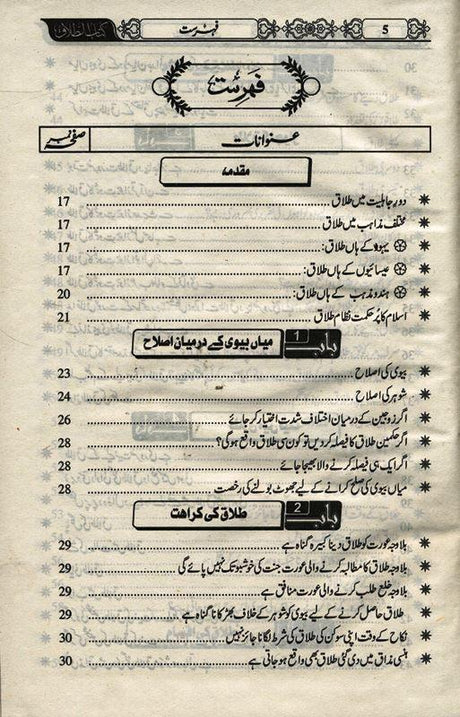 5 فہرست کتاب الطلاق
فہرست
عنوانات صفحہ نمبر
مقدمہ
دورِ جاہلیت میں طلاق 17
مختلف مذاہب میں طلاق 17
یہود کے ہاں طلاق: 17
عیسائیوں کے ہاں طلاق: 17
ہندو مذہب کے ہاں طلاق: 20
اسلام کا پُر حکمت نظامِ طلاق 21
باب 1 میاں بیوی کے درمیان اصلاح
بیوی کی اصلاح 23
شوہر کی اصلاح 24
اگر زوجین کے درمیان اختلاف شدت اختیار کر جائے 26
اگر حکمین طلاق کا فیصلہ کر دیں تو کون سی طلاق واقع ہو گی؟ 28
اگر ایک ہی فیصلہ کرنے والا بھیجا جائے 28
میاں بیوی کی صلح کرانے کے لیے جھوٹ بولنے کی رخصت 28
باب 2 طلاق کی کراھت
بلاوجہ عورت کو طلاق دینا کبیرہ گناہ ہے 29
بلاوجہ طلاق کا مطالبہ کرنے والی عورت جنت کی خوشبو تک نہیں پائے گی 29
بلاوجہ خلع طلب کرنے والی عورت منافق ہے 29
طلاق حاصل کرنے کے لیے بیوی کو شوہر کے خلاف بھڑکانا گناہ ہے 29
نکاح کے وقت اپنی سوکن کی طلاق کی شرط لگانا جائز نہیں 30
ہنسی مذاق میں دی گئی طلاق بھی واقع ہو جاتی ہے 30